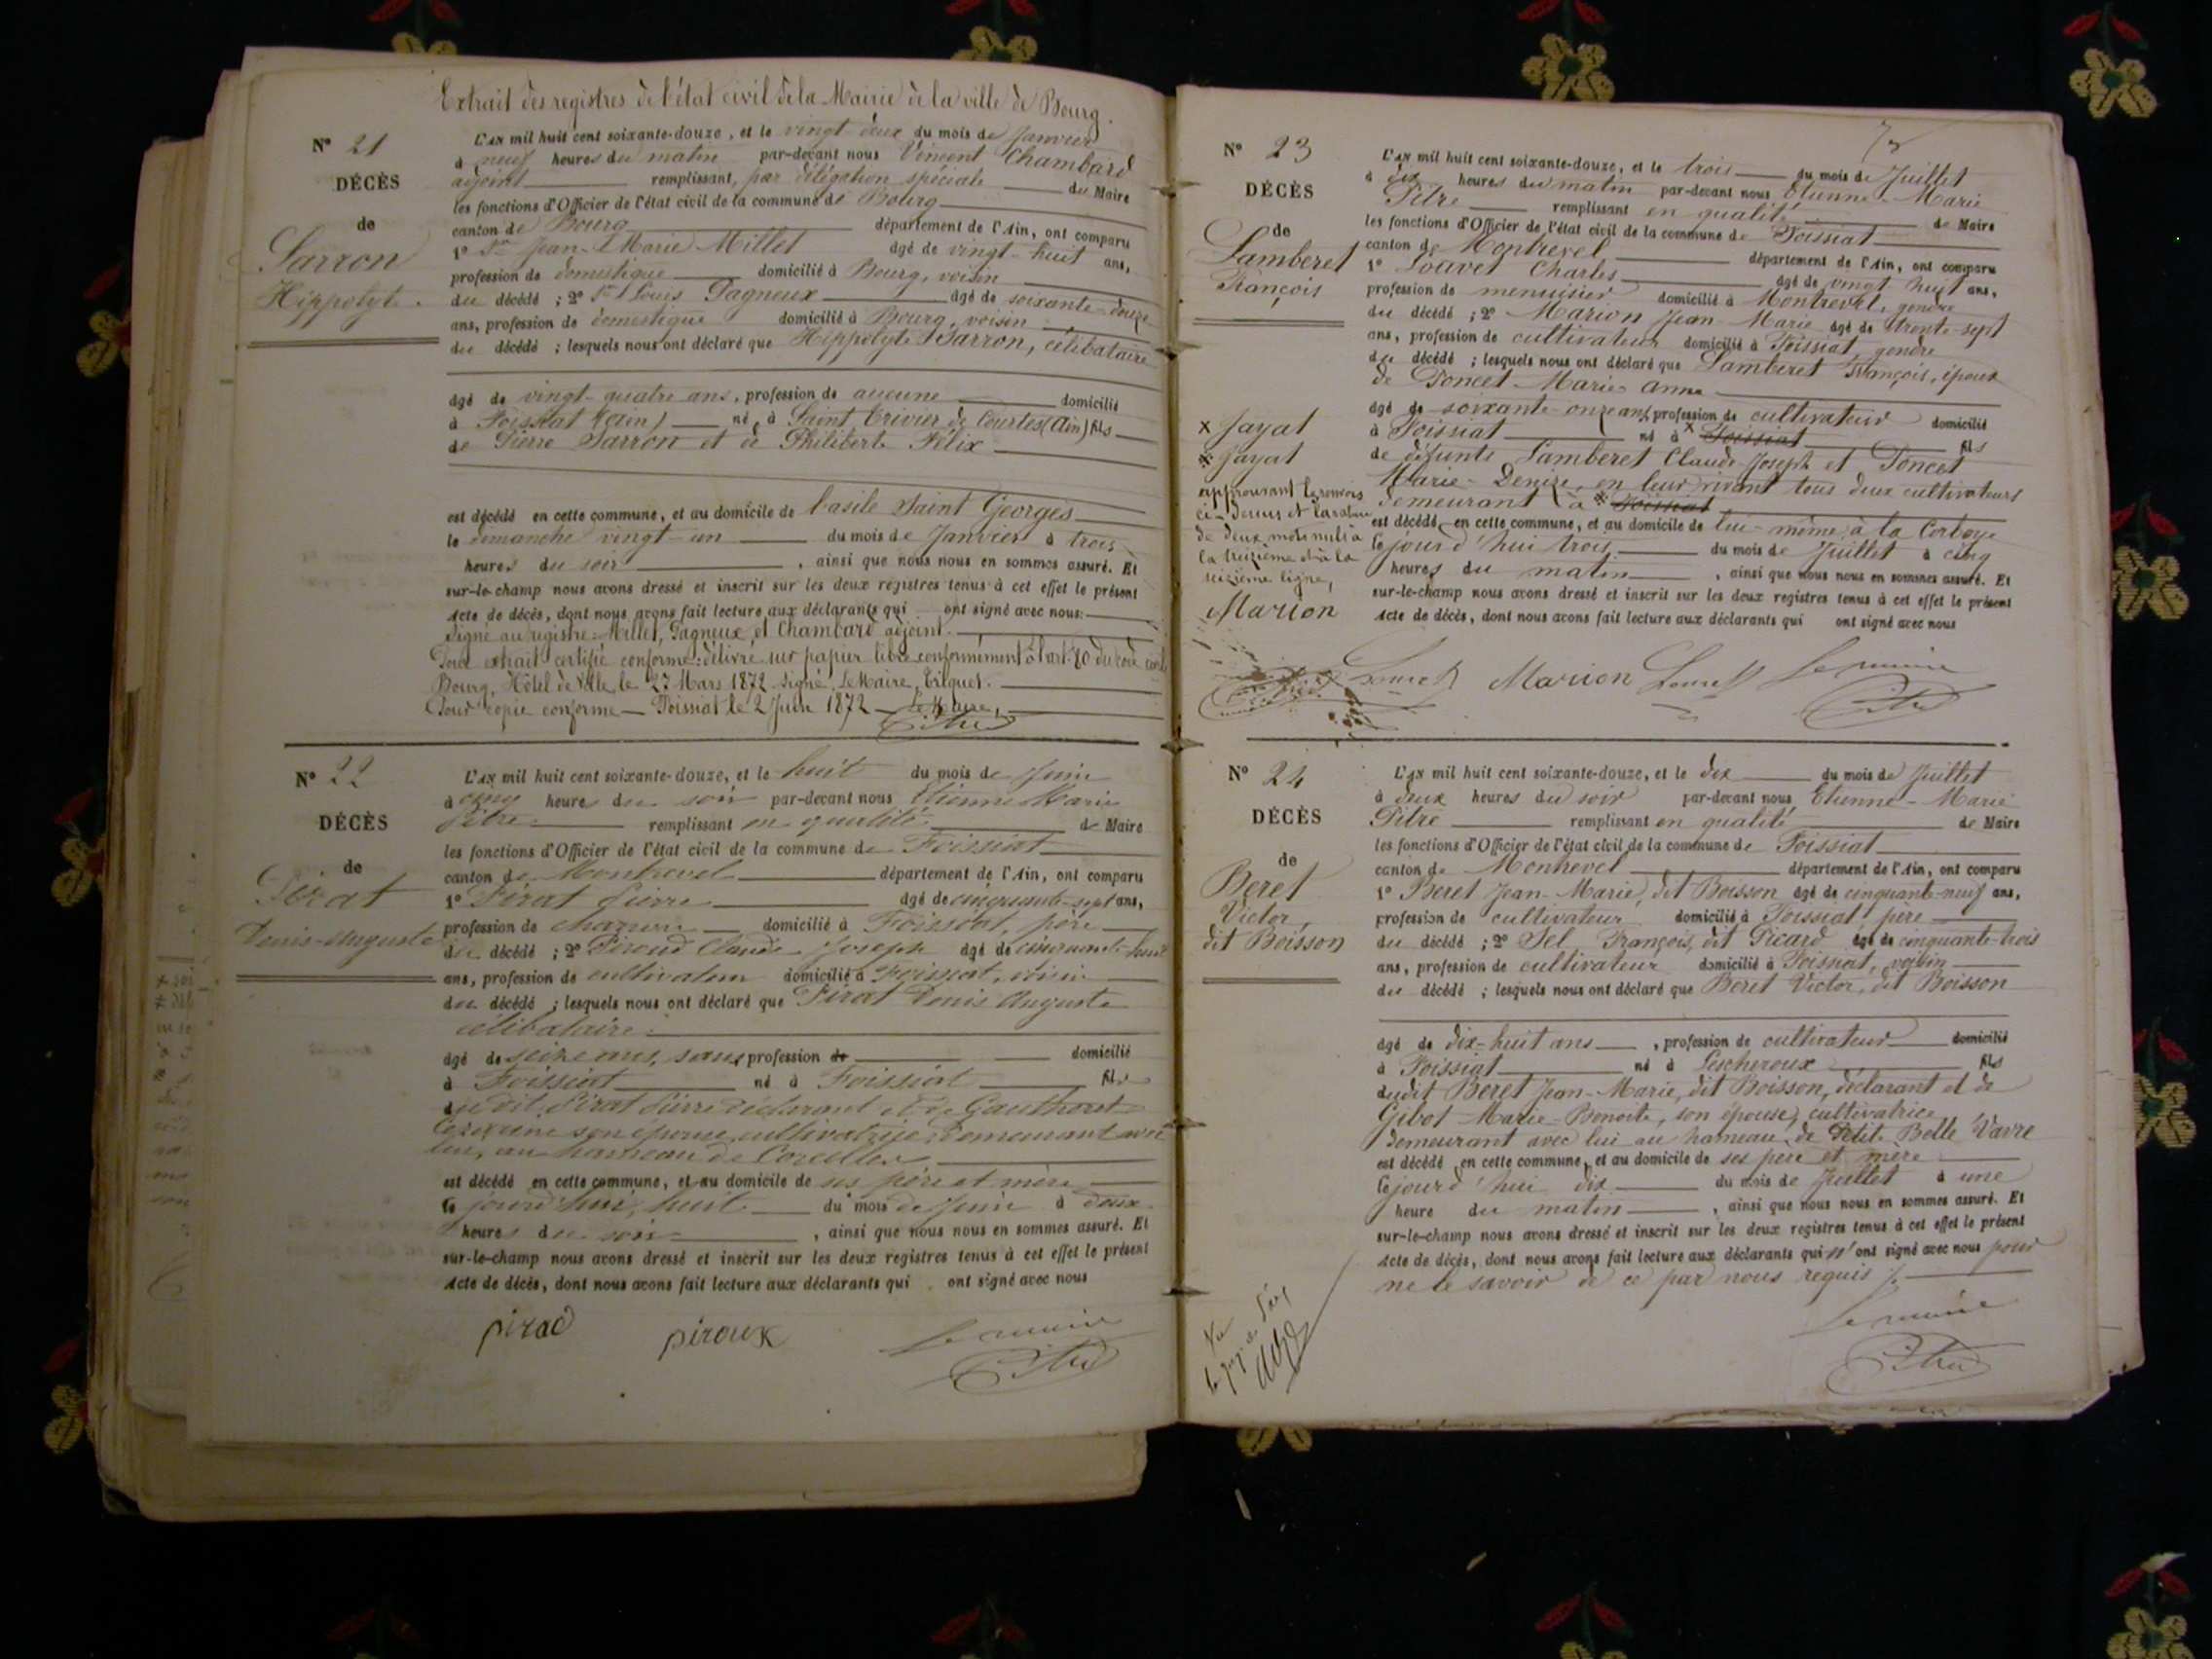 Extrait des registres de l'état civil de la Mairie de la ville de Bourg.
N° 21
DÉCÈS
de
Sarron
Hippolyte.
L'AN mil huit cent soixante-douze, et le vingt deux du mois de Janvier
à neuf heures du matin par-devant nous Vincent Chambard
adjoint remplissant, par délégation spéciale du Maire
les fonctions d'Officier de l'état civil de la commune de Bourg
canton de Bourg département de l'Ain, ont comparu
1° Sr Jean-Marie Millet âgé de vingt-huit ans,
profession de domestique domicilié à Bourg, voisin
du décédé ; 2° Sr Louis Pagneux âgé de soixante-douze
ans, profession de domestique domicilié à Bourg, voisin
du décédé ; lesquels nous ont déclaré que Hippolyte Sarron, célibataire
âgé de vingt-quatre ans, profession de aucune domicilié
à Foissiat (Ain) né à Saint Trivier de Courtes (Ain) fils
de Pierre Sarron et de Philiberte Félix
est décédé en cette commune, et au domicile de l'asile Saint Georges
le dimanche vingt-un du mois de Janvier à trois
heures du soir, ainsi que nous nous en sommes assuré. Et
sur-le-champ nous avons dressé et inscrit sur les deux registres tenus à cet effet le présent
Acte de décès, dont nous avons fait lecture aux déclarants qui ont signé avec nous:
Signé au registre: Millet, Pagneux et Chambard adjoint.
Pour extrait certifié conforme: délivré sur papier libre conformément à l'art. 80 du code civil
Bourg, Hôtel de Ville, le 27 Mars 1872 signé, Le Maire,
Pour copie conforme — Foissiat le 2 Juin 1872 — Le Maire,
Pitre
N° 22
DÉCÈS
de
Pirat
Denis-Auguste
L'AN mil huit cent soixante-douze, et le huit du mois de Juin
à cinq heures du soir par-devant nous Etienne Marie
Pitre remplissant en qualité de Maire
les fonctions d'Officier de l'état civil de la commune de Foissiat
canton de Montrevel département de l'Ain, ont comparu
1° Pirat Pierre âgé de cinquante-sept ans,
profession de charron domicilié à Foissiat, père
du décédé ; 2° Piroud Claude Joseph âgé de cinquante-huit
ans, profession de cultivateur domicilié à Foissiat, voisin
du décédé ; lesquels nous ont déclaré que Pirat Denis Auguste
célibataire
âgé de seize ans, sans profession de domicilié
à Foissiat né à Foissiat fils
du dit Pirat Pierre déclarant et de
son épouse cultivatrice, demeurant avec
lui, au hameau de Corcelles
est décédé en cette commune, et au domicile de ses père et mère
le jourd'hui, huit du mois de Juin à deux
heures du soir, ainsi que nous nous en sommes assuré. Et
sur-le-champ nous avons dressé et inscrit sur les deux registres tenus à cet effet le présent
Acte de décès, dont nous avons fait lecture aux déclarants qui ont signé avec nous
pirad piroux Le maire
Pitre
N° 23
DÉCÈS
de
Lamberet
François
L'AN mil huit cent soixante-douze, et le trois du mois de Juillet
à dix heures du matin par-devant nous Etienne-Marie
Pitre remplissant en qualité de Maire
les fonctions d'Officier de l'état civil de la commune de Foissiat
canton de Montrevel département de l'Ain, ont comparu
1° Louvet Charles âgé de vingt huit ans,
profession de menuisier domicilié à Montrevel, gendre
du décédé ; 2° Marion Jean-Marie âgé de trente-sept
ans, profession de cultivateur domicilié à Foissiat, gendre
du décédé ; lesquels nous ont déclaré que Lamberet François, époux
de Poncet Marie-Anne
âgé de soixante-onze ans, profession de cultivateur domicilié
à Foissiat né à x Foissiat fils
de défunts Lamberet Claude-Joseph et Poncet
Marie-Denise, en leur vivant tous deux cultivateurs
demeurant à Foissiat
est décédé en cette commune, et au domicile de lui-même, à la Corboye
le jourd'hui trois du mois de Juillet à cinq
heures du matin, ainsi que nous nous en sommes assuré. Et
sur-le-champ nous avons dressé et inscrit sur les deux registres tenus à cet effet le présent
Acte de décès, dont nous avons fait lecture aux déclarants qui ont signé avec nous
x Jayat
Jayat
approuvant le renvois
ci-dessus et la rature
de deux mots nuls à
la treizième et à la
seizième ligne,
Marion
Louvet Marion Louvet Le maire
Pitre
N° 24
DÉCÈS
de
Beret
Victor,
dit Boisson
L'AN mil huit cent soixante-douze, et le dix du mois de Juillet
à deux heures du soir par-devant nous Etienne-Marie
Pitre remplissant en qualité de Maire
les fonctions d'Officier de l'état civil de la commune de Foissiat
canton de Montrevel département de l'Ain, ont comparu
1° Beret Jean-Marie, dit Boisson âgé de cinquante-neuf ans,
profession de cultivateur domicilié à Foissiat, père
du décédé ; 2° Sel François, dit Picard âgé de cinquante-trois
ans, profession de cultivateur domicilié à Foissiat, voisin
du décédé ; lesquels nous ont déclaré que Beret Victor, dit Boisson
âgé de dix-huit ans, profession de cultivateur domicilié
à Foissiat né à Lescheroux fils
dudit Beret Jean-Marie, dit Boisson, déclarant et de
Gibot Marie-Benoite, son épouse, cultivatrice,
demeurant avec lui au hameau de Petit Belle Vavre
est décédé en cette commune, et au domicile de ses père et mère
le jourd'hui dix du mois de Juillet à une
heure du matin, ainsi que nous nous en sommes assuré. Et
sur-le-champ nous avons dressé et inscrit sur les deux registres tenus à cet effet le présent
Acte de décès, dont nous avons fait lecture aux déclarants qui n'ont signé avec nous pour
ne le savoir de ce par nous requis
Le maire
Pitre